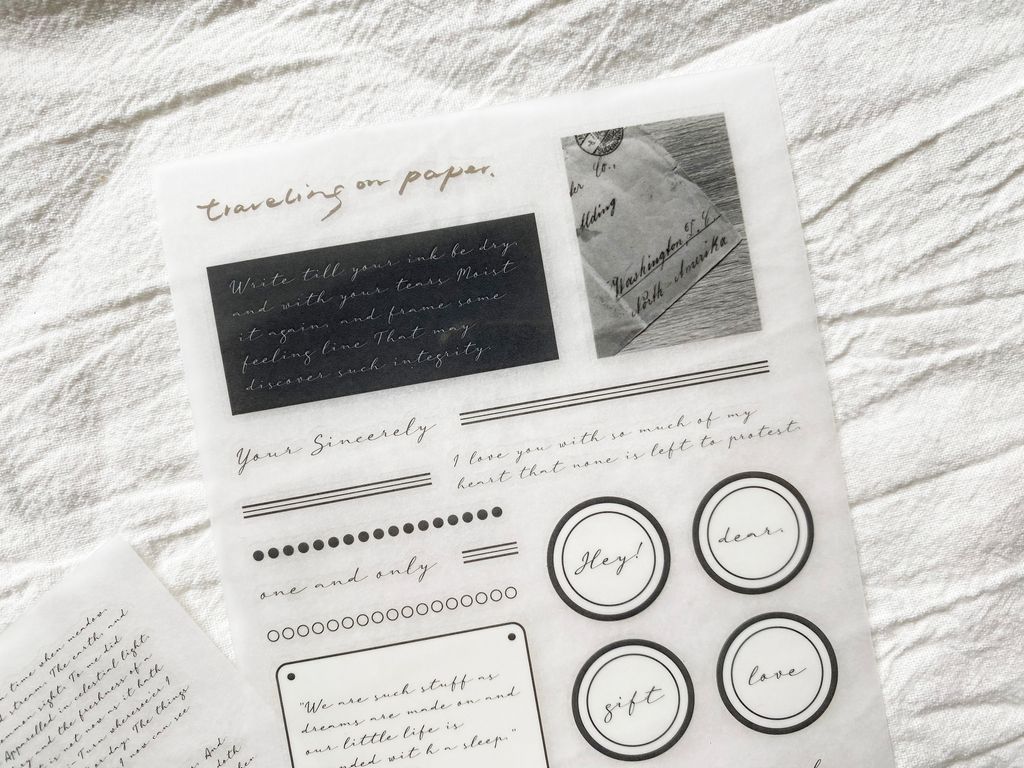 traveling on paper.
Write till your ink be dry,
and with your tears Moist
it again, and frame some
feeling line That may
discover such integrity.
Co.,
lding
Washington D. C.
North Amerika
Your Sincerely
I love you with so much of my
heart that none is left to protest.
one and only
Hey!
dear.
gift
love
"We are such stuff as
dreams are made on and
our little life is
nded with a sleep."
time when meadow,
d stream, The earth, and
common sight, To me did
Apparelled in celestial light,
y and the freshness of a
is not now as it hath
Turn wheresoe'er I
or day, The things
I now can see
And
doth
when